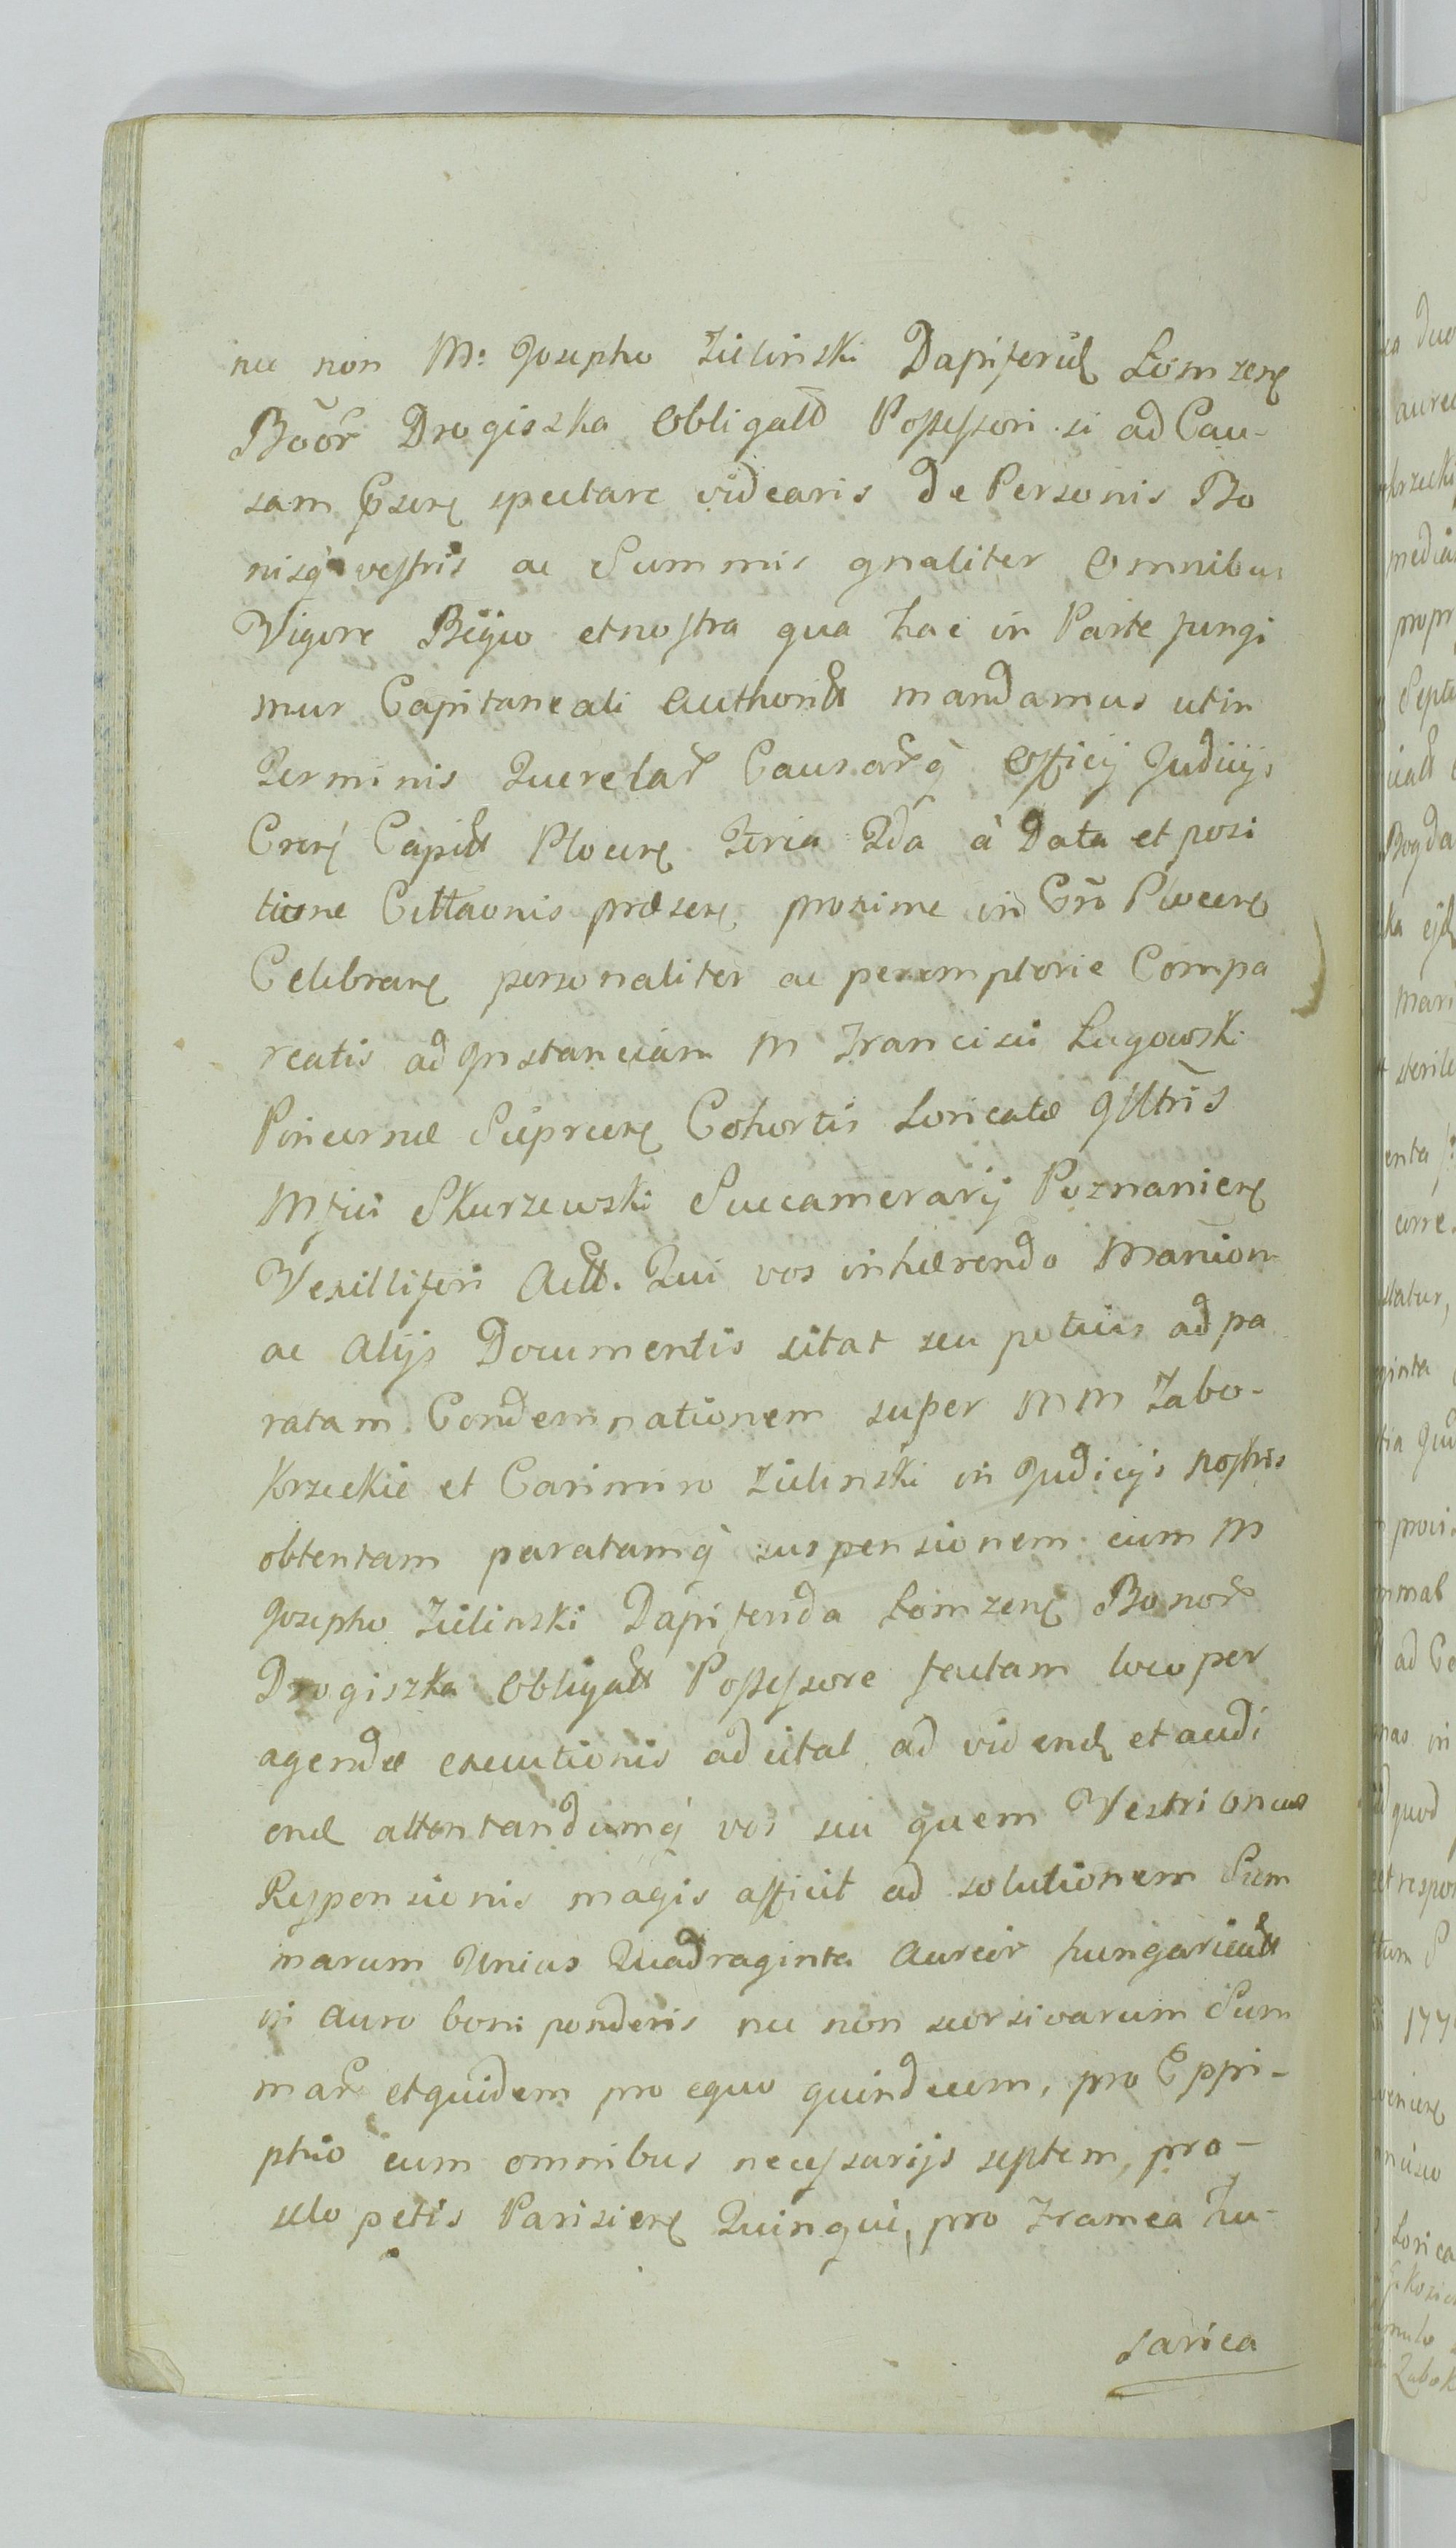 nec non M: Josepho Zielinski Dapiferid Łomzen
Boor Drogiszka Obligatt Possessori si ad Cau-
sam Psen spectare videaris de Personis Bo
nisq vestris ac Summis gnaliter Omnibus
Vigore Regio et nostra qua hac in Parte fungi
mur Capitaneali Authoritt mandamus ut in
Terminis Querelar Causarq Officij Judicijs
Cren Capitt Plocen Feria 2da à Data et posi
tione Cittaonis præsen proxime in Gro Plocen
Celebran personaliter ac peremptorie Compa
reatis ad Instanciam M Francisci Lugowski
Pincernæ Supreen Cohortis Loricatæ Illtris
Mfici Skurzewski Succamerarij Poznanien
Vexilliferi Actt. Qui vos inhærendo Manion
ac Alijs Documentis citat seu potius ad pa
ratam Condemnationem super MM Zabo-
krzeckie et Casimiro Zielinski in Judicijs nostris
obtentam paratamq suspensionem cum M
Josepho Zielinski Dapiferida Łomzen Bonor
Drogiszka Obligatt Possessore factam loco per
agendæ executionis adcitat ad videnl et audi
enl attentandumq vos seu quem Vestri onus
Responsionis magis afficit ad solutionem Sum
marum Unius Quadraginta Aureor hungaricatt
in Auro boni ponderis nec non seorsivarum Sum
mar et quidem pro equo quindecem, pro Eppi-
phio cum omnibus necessarijs septem, pro-
sclopetis Parisien Quinque, pro Framea hu-
sarica